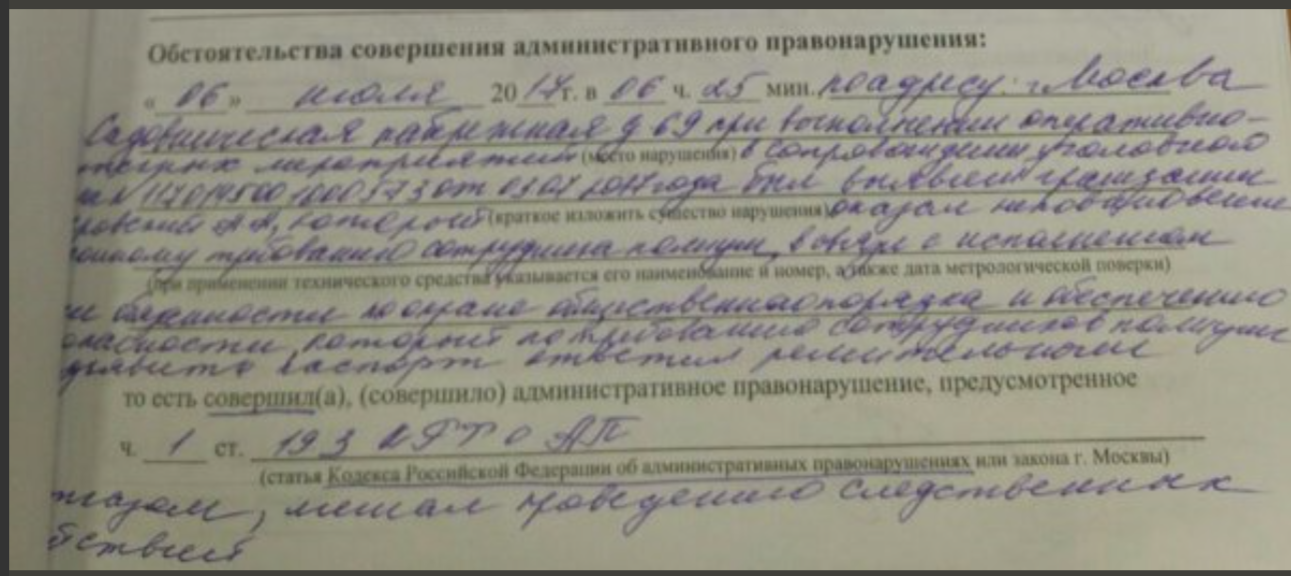 Обстоятельства совершения административного правонарушения:
« 06 » июля 2017 г. в 06 ч. 25 мин. по адресу: г. Москва
Садовническая набережная д 69 при выполнении оперативно-
мероприятий (место нарушения) в сопровождении уголовного
от 03 07 2017 года был выявлен гражданин
ровский А А, который (краткое изложить существо нарушения) оказал неповиновение
онному требованию сотрудника полиции, в связи с исполнением
(при применении технического средства указывается его наименование и номер, а также дата метрологической поверки)
обязанностей по охране общественного порядка и обеспечению
опасности, который по требованию сотрудников полиции
паспорт ответил решительным
то есть совершил(а), (совершило) административное правонарушение, предусмотренное
ч. 1 ст. 19 3 КРФ о АП
(статья Кодекса Российской Федерации об административных правонарушениях или закона г. Москвы)
тказом, мешал проведению следственных
йствий